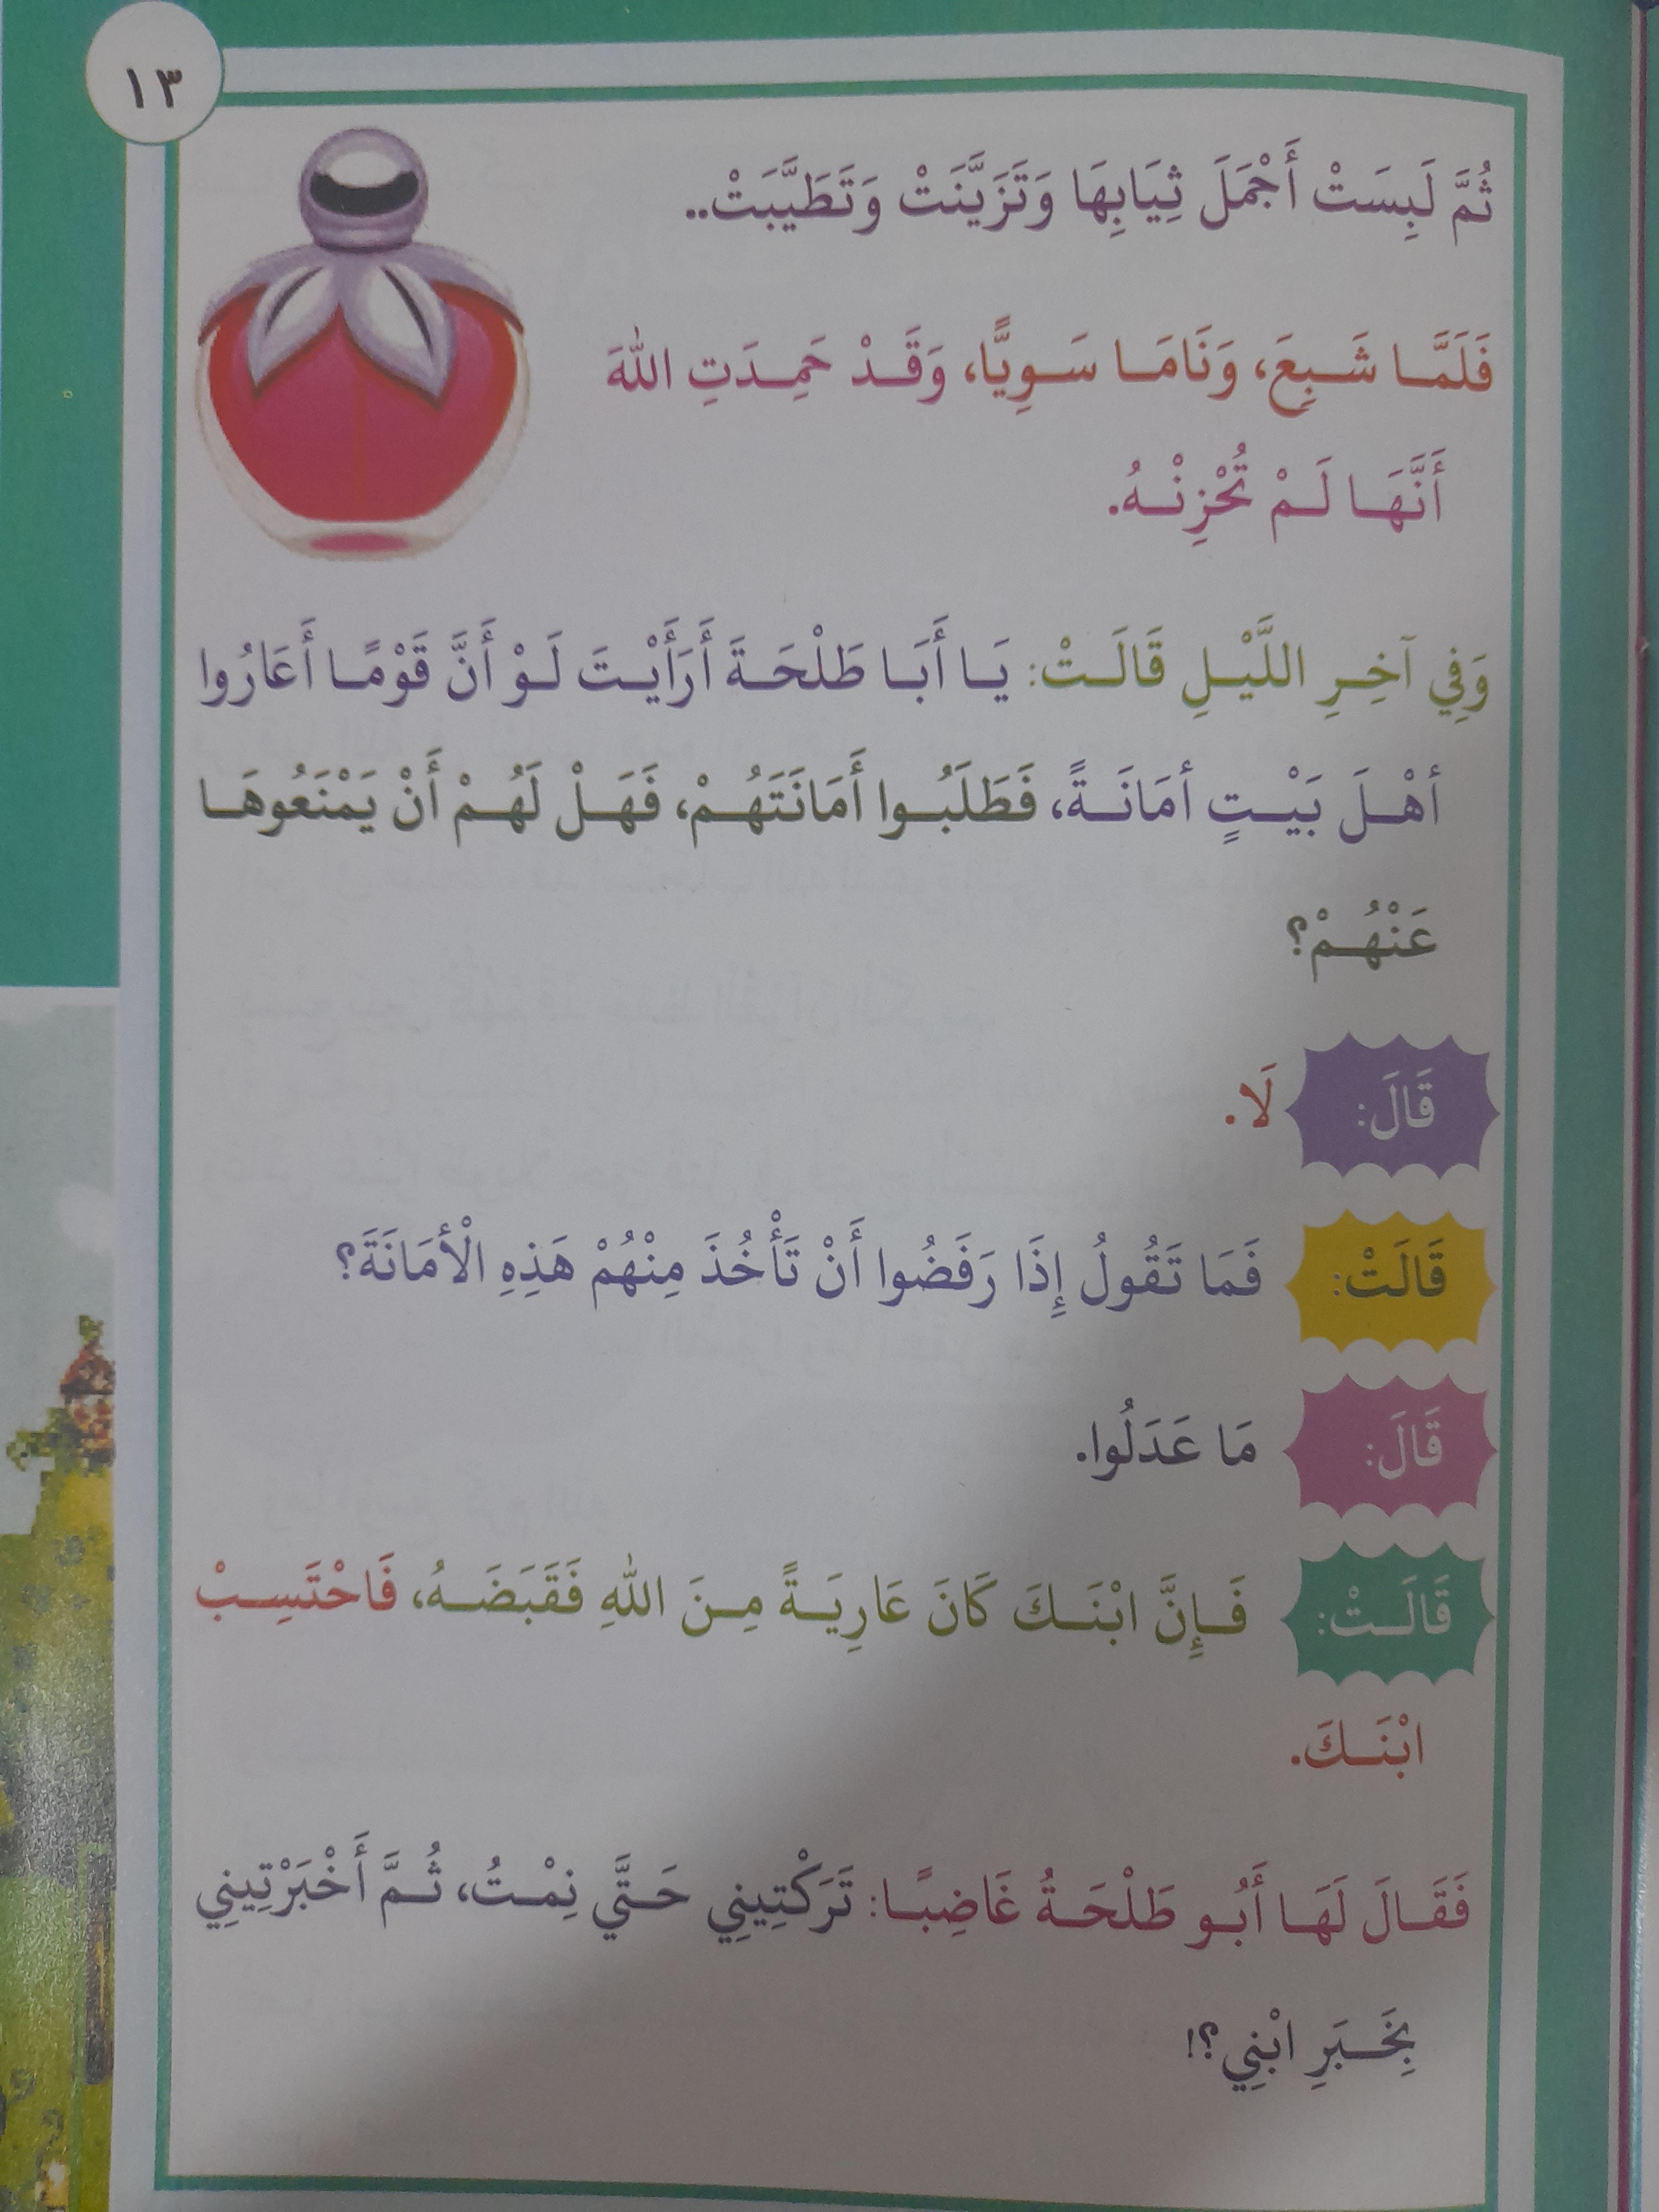 ١٣
ثُمَّ لَبِسَتْ أَجْمَلَ ثِيَابِهَا وَتَزَيَّنَتْ وَتَطَيَّبَتْ..
فَلَمَّا شَبِعَ، وَنَامَا سَوِيًّا، وَقَدْ حَمِدَتِ اللهَ
أَنَّهَا لَمْ تُحْزِنْهُ.
وَفِي آخِرِ اللَّيْلِ قَالَتْ: يَا أَبَا طَلْحَةَ أَرَأَيْتَ لَوْ أَنَّ قَوْمًا أَعَارُوا
أهْلَ بَيْتٍ أمَانَةً، فَطَلَبُوا أَمَانَتَهُمْ، فَهَلْ لَهُمْ أَنْ يَمْنَعُوهَا
عَنْهُمْ؟
قَالَ: لَا.
قَالَتْ: فَمَا تَقُولُ إِذَا رَفَضُوا أَنْ تَأْخُذَ مِنْهُمْ هَذِهِ الْأمَانَةَ؟
قَالَ: مَا عَدَلُوا.
قَالَتْ: فَإِنَّ ابْنَكَ كَانَ عَارِيَةً مِنَ اللهِ فَقَبَضَهُ، فَاحْتَسِبْ
ابْنَكَ.
فَقَالَ لَهَا أَبُو طَلْحَةُ غَاضِبًا: تَرَكْتِينِي حَتَّي نِمْتُ، ثُمَّ أَخْبَرْتِينِي
بِخَبَرِ ابْنِي؟!